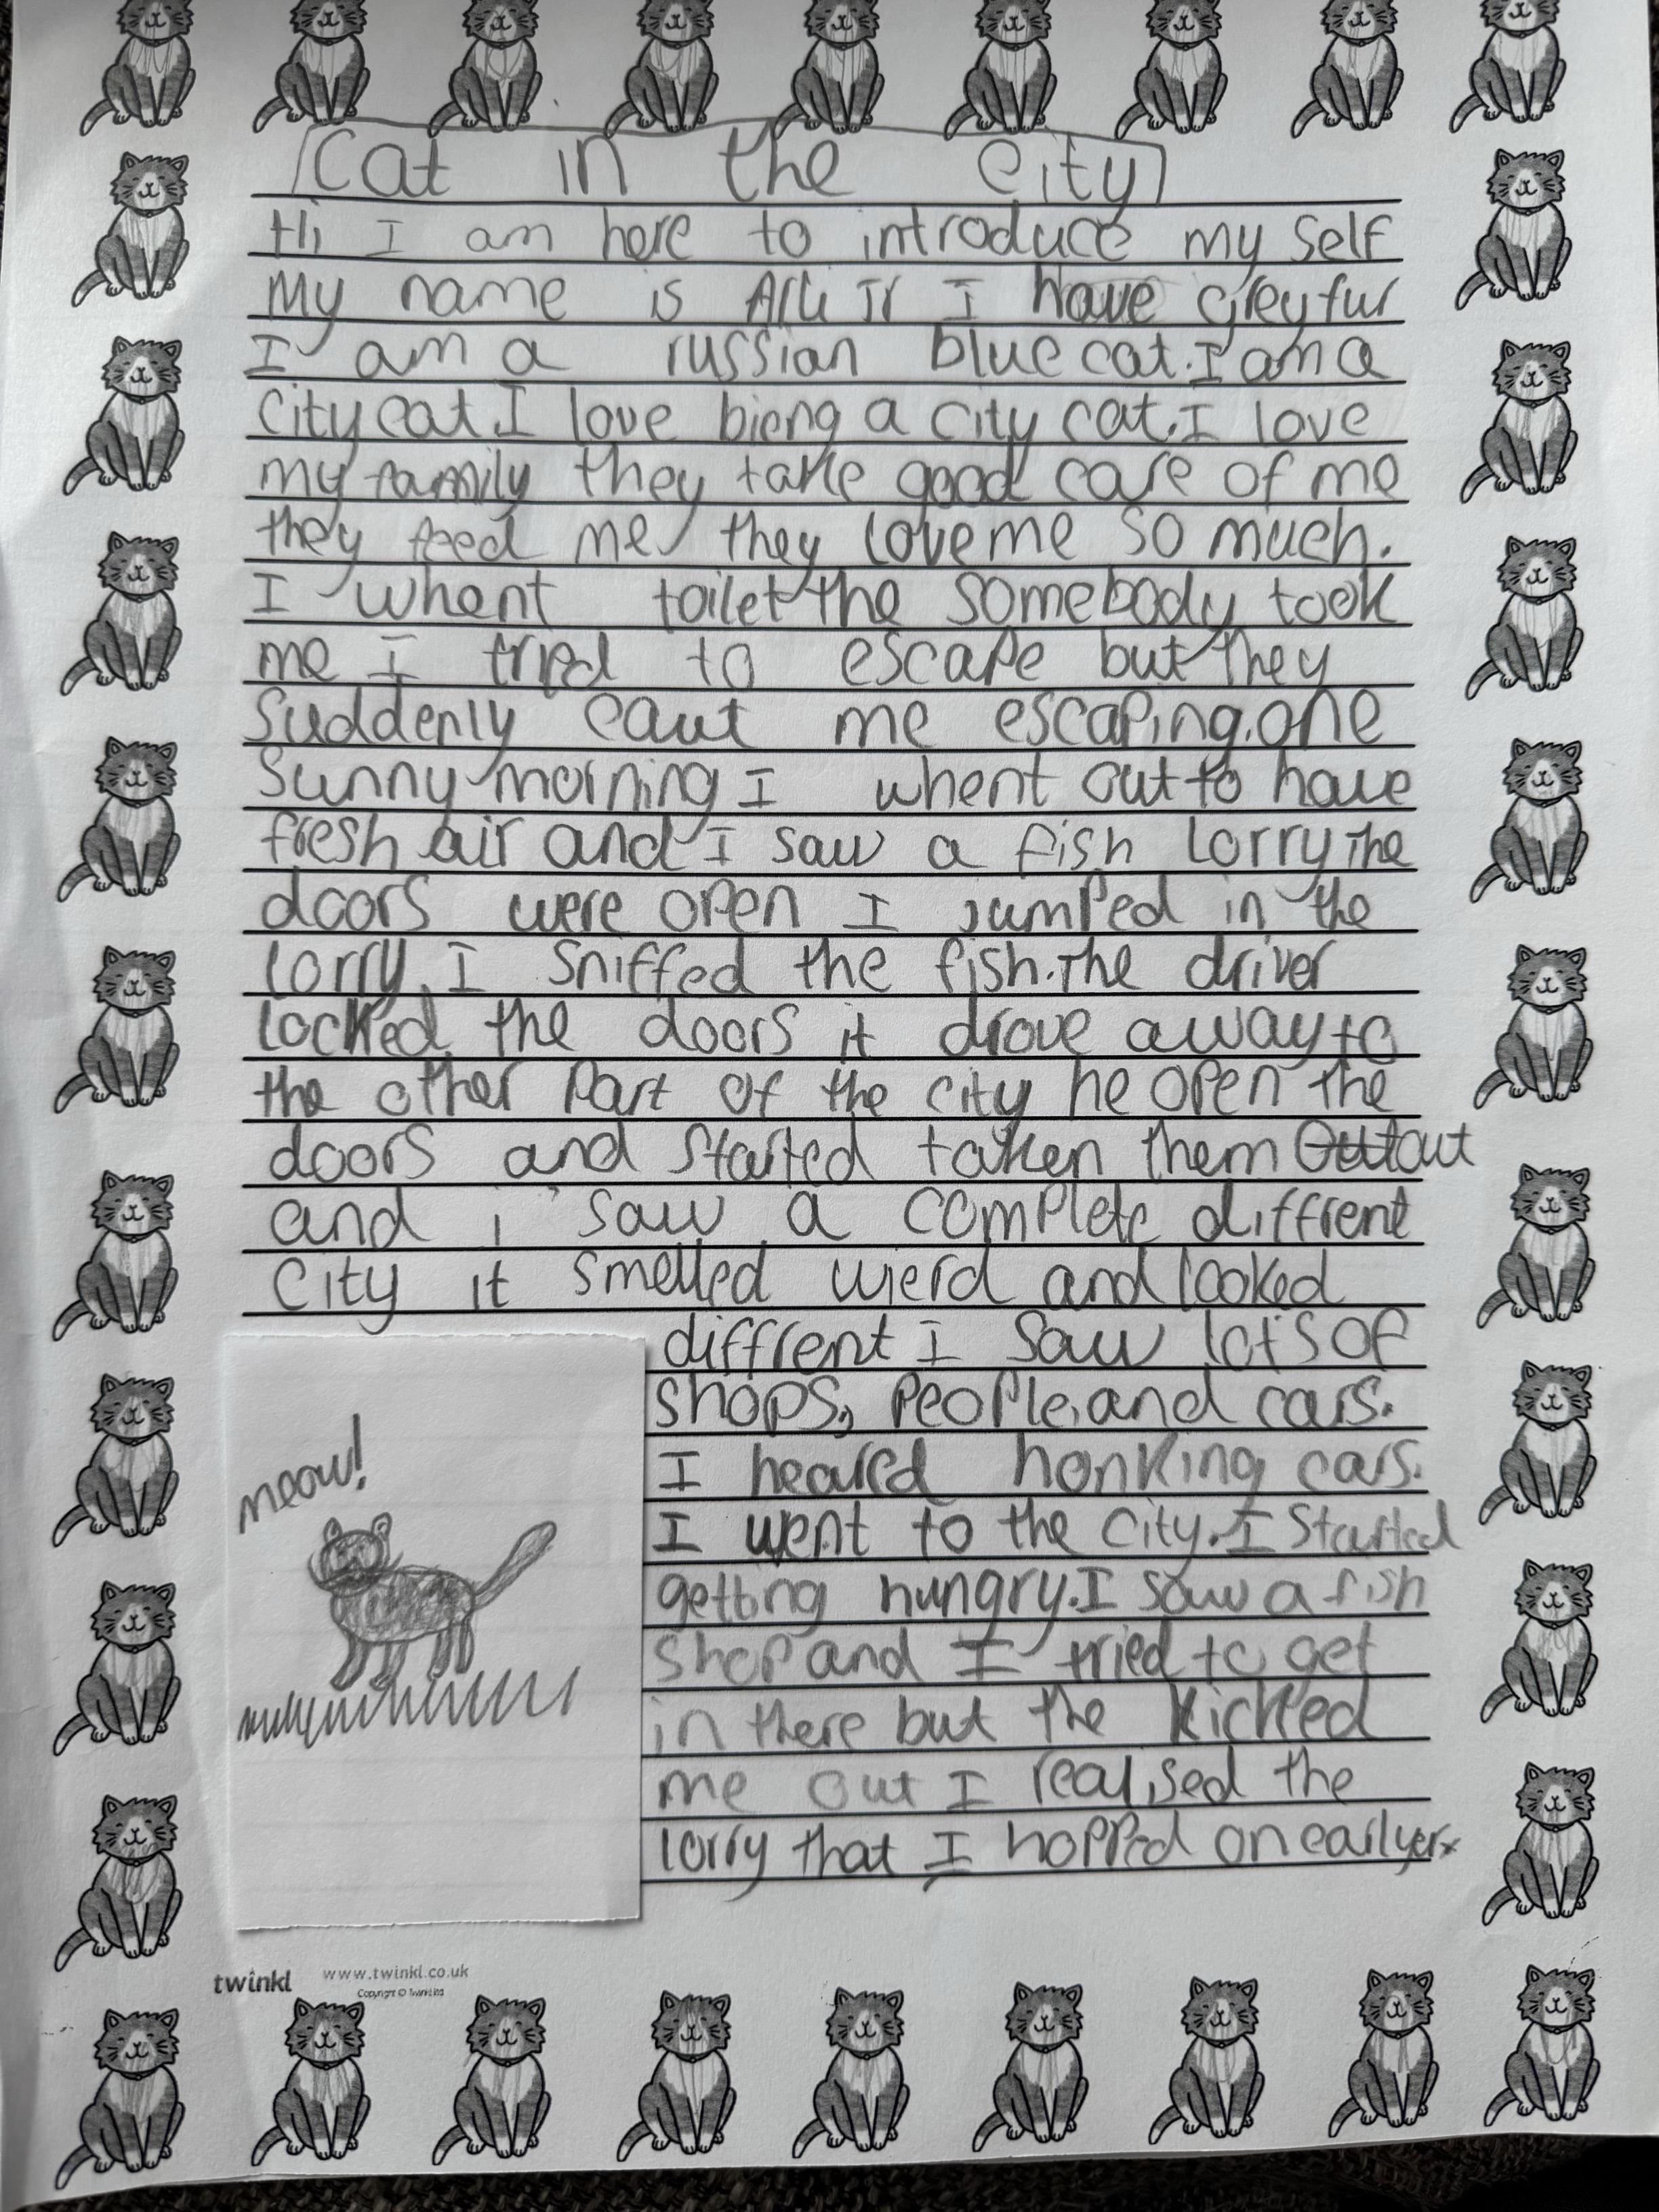 Cat in the City
Hi I am here to introduce my self
My name is Jr I have Grey fur
I am a russian blue cat. I am a
city cat. I love bieng a city cat. I love
my family they take good care of me
they feed me they love me so much.
I whent toilet the somebody took
me I tried to escape but they
suddenly caut me escaping. one
sunny morning I whent out to have
fresh air and I saw a fish lorry The
doors were open I jumped in the
lorry, I sniffed the fish. The driver
locked the doors it drove away to
the other Part of the city he open the
doors and started taken them out
and i saw a complete diffrent
city it smelled wierd and looked
diffrent I saw lots of
shops, People, and cars.
I heared honking cars.
I went to the city. I started
getting hungry. I saw a fish
shop and I tried to get
in there but the kicked
me out I realised the
lorry that I hopped on earlyer
meow!
twinkl www.twinkl.co.uk
Copyright © Twinkl Ltd